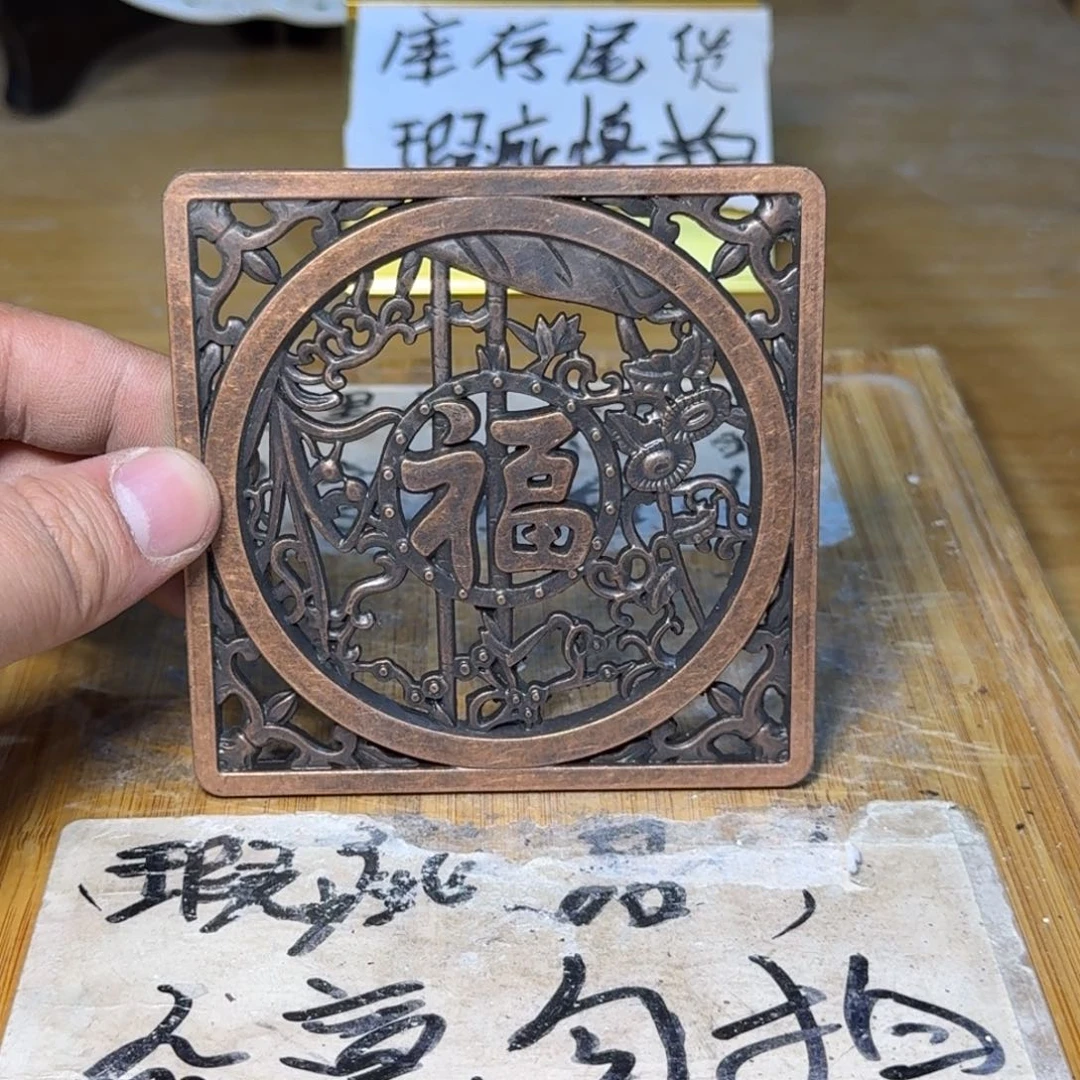 库存尾货
瑕疵慎拍
福
瑕疵品，
介意勿拍